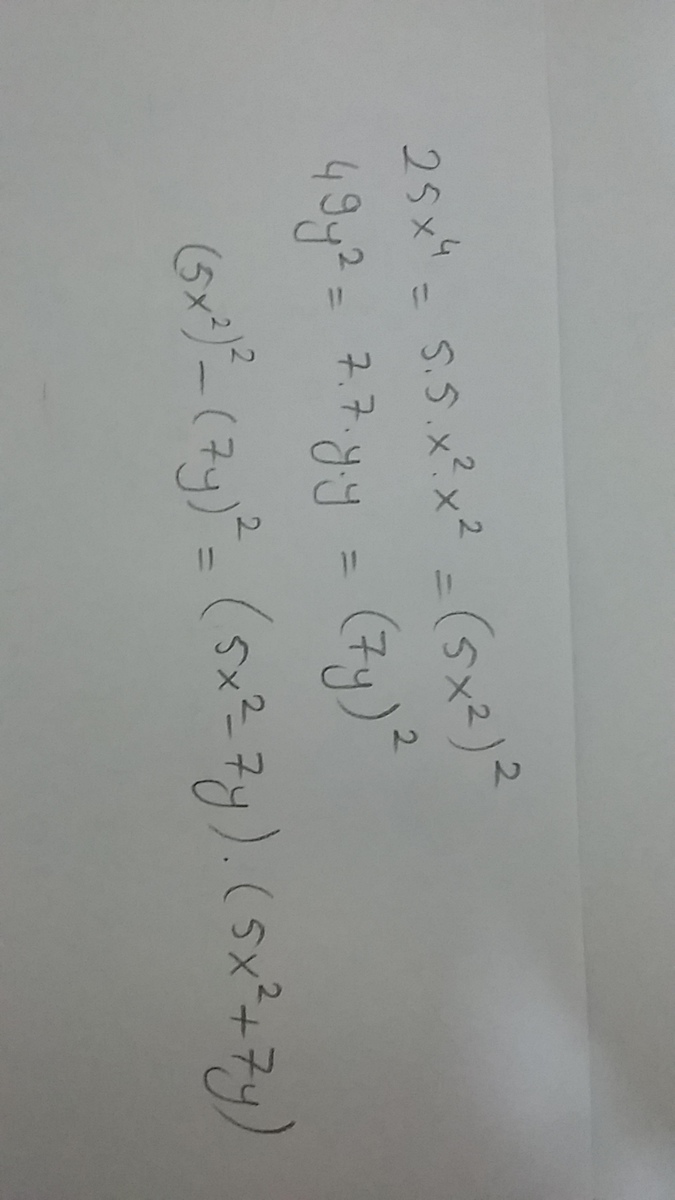 25x⁴ = 5.5.x².x² = (5x²)²
49y² = 7.7.y.y = (7y)²
(5x²)² - (7y)² = (5x² - 7y).(5x² + 7y)